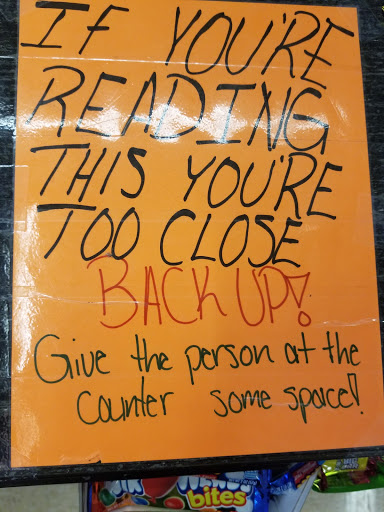 IF YOU'RE
READING
THIS YOU'RE
TOO CLOSE
BACK UP!
Give the person at the
counter some space!
bites